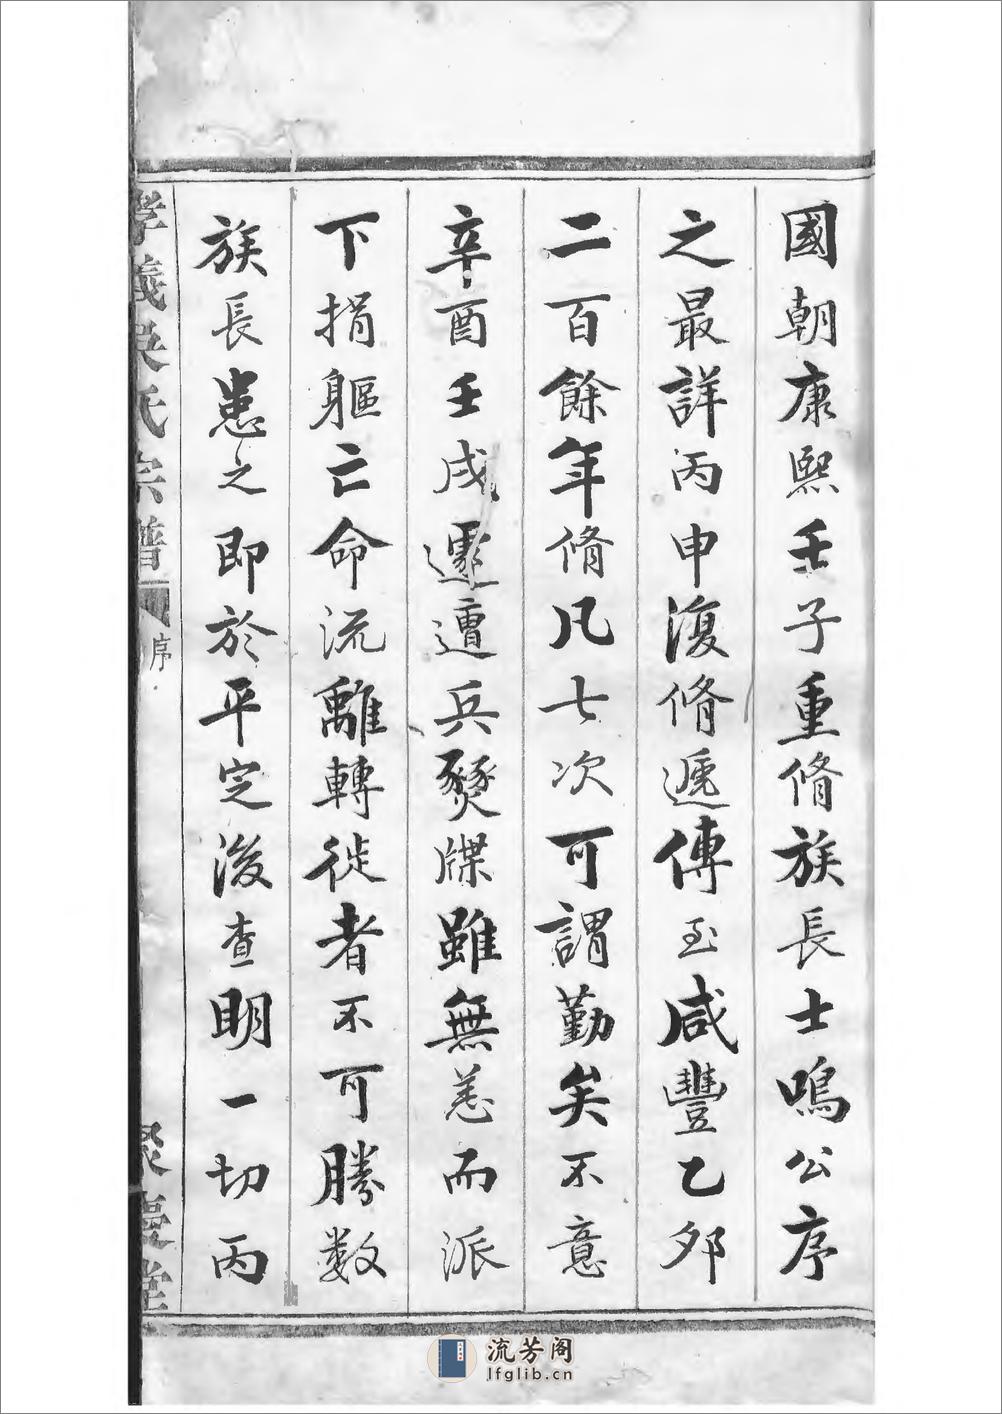 國朝康熙壬子重脩族長士鳴公序
之最詳丙申復脩遞傳至咸豐乙夘
二百餘年脩凡七次可謂勤矣不意
辛酉壬戌遷遭兵燹牒雖無恙而派
下捐軀亡命流離轉徙者不可勝数
族長患之即於平定後查明一切丙
孝義吳氏宗譜
序
聚慶堂
流芳阁
lfglib.cn